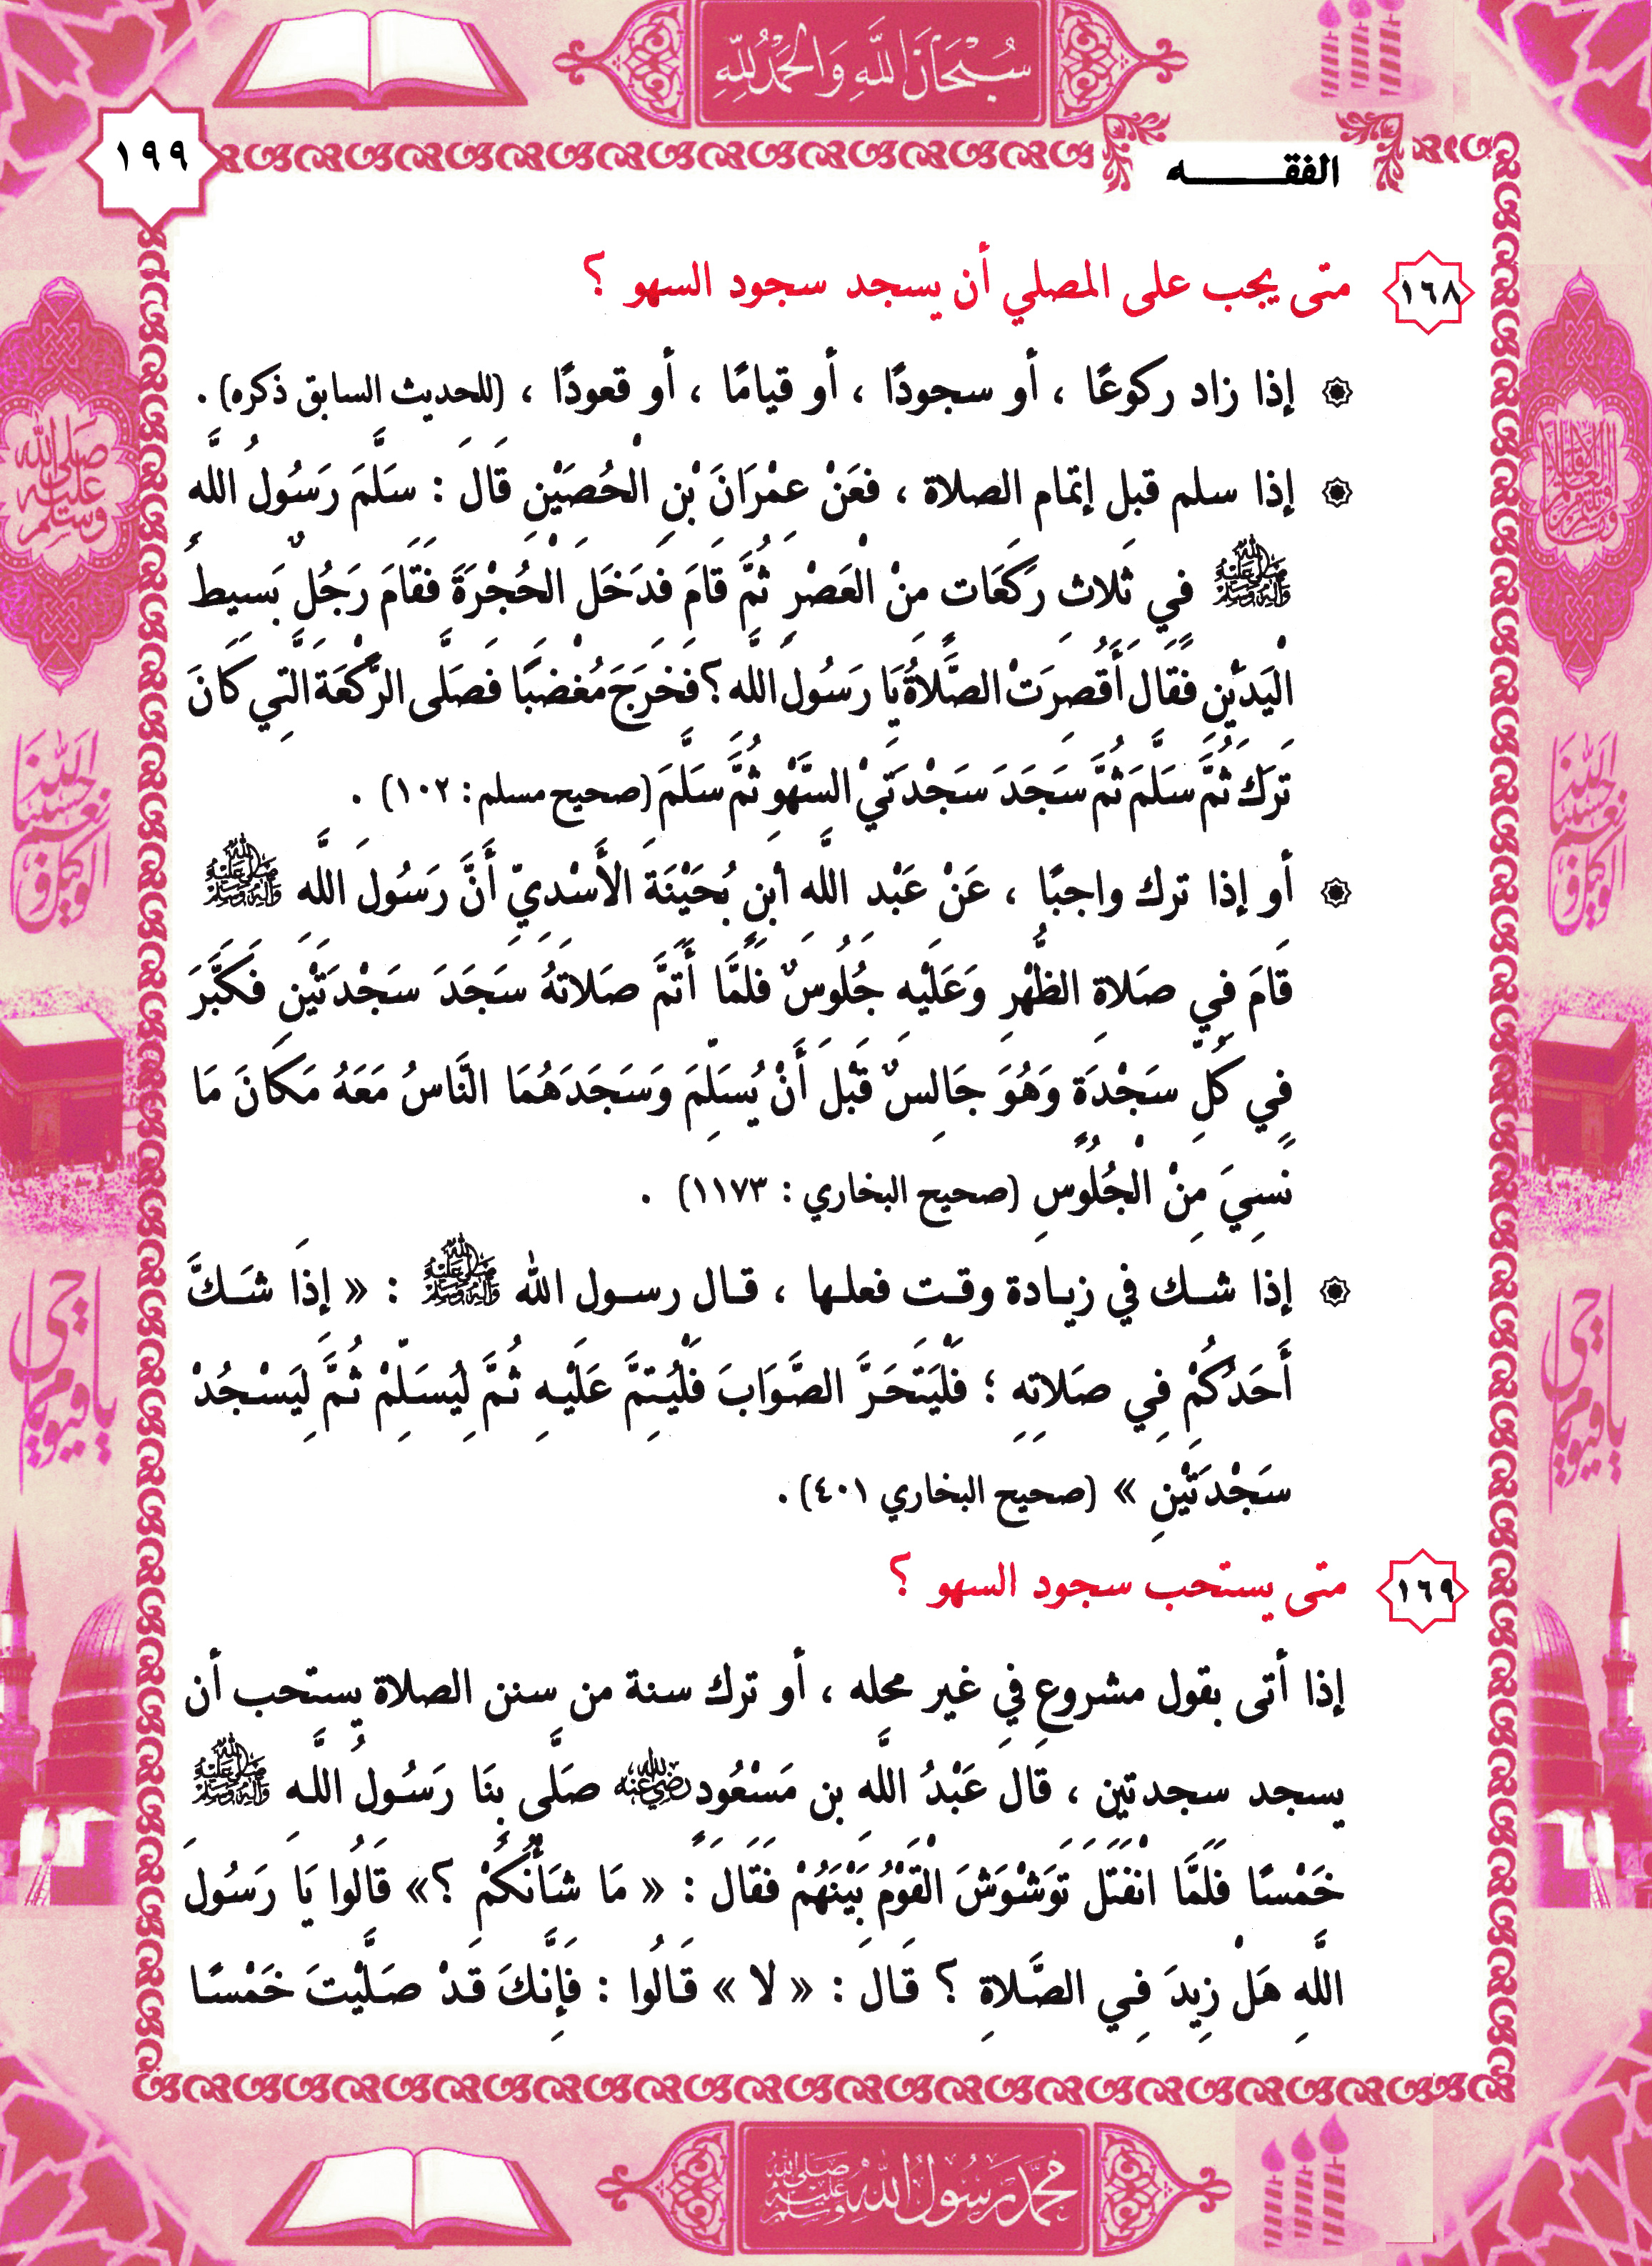 سُبْحَانَ اللَّهِ وَالْحَمْدُ لِلَّهِ
١٩٩
الفقـــــه
١٦٨ متى يجب على المصلي أن يسجد سجود السهو ؟
إذا زاد ركوعًا ، أو سجودًا ، أو قيامًا ، أو قعودًا ، (للحديث السابق ذكره) .
إذا سلم قبل إتمام الصلاة ، فعَنْ عِمْرَانَ بْنِ الْحُصَيْنِ قَالَ : سَلَّمَ رَسُولُ اللَّهِ
ﷺ فِي ثَلاثِ رَكَعَاتٍ مِنْ الْعَصْرِ ثُمَّ قَامَ فَدَخَلَ الْحُجْرَةَ فَقَامَ رَجُلٌ بَسِيطُ
الْيَدَيْنِ فَقَالَ أَقُصِرَتْ الصَّلاَةُ يَا رَسُولَ اللَّهِ ؟ فَخَرَجَ مُغْضَبًا فَصَلَّى الرَّكْعَةَ الَّتِي كَانَ
تَرَكَ ثُمَّ سَلَّمَ ثُمَّ سَجَدَ سَجْدَتَيْ السَّهْوِ ثُمَّ سَلَّمَ (صحيح مسلم : ١٠٢) .
أو إذا ترك واجبًا ، عَنْ عَبْدِ اللَّهِ ابْنِ بُحَيْنَةَ الأَسْدِيِّ أَنَّ رَسُولَ اللَّهِ ﷺ
قَامَ فِي صَلاةِ الظُّهْرِ وَعَلَيْهِ جُلُوسٌ فَلَمَّا أَتَمَّ صَلاتَهُ سَجَدَ سَجْدَتَيْنِ فَكَبَّرَ
فِي كُلِّ سَجْدَةٍ وَهُوَ جَالِسٌ قَبْلَ أَنْ يُسَلِّمَ وَسَجَدَهُمَا النَّاسُ مَعَهُ مَكَانَ مَا
نَسِيَ مِنْ الْجُلُوسِ (صحيح البخاري : ١١٧٣) .
إذا شـك في زيـادة وقـت فعلـها ، قـال رسـول الله ﷺ : « إِذَا شَـكَّ
أَحَدُكُمْ فِي صَلاتِهِ ؛ فَلْيَتَحَـرَّ الصَّوَابَ فَلْيُتِمَّ عَلَيْـهِ ثُـمَّ لِيُسَـلِّمْ ثُـمَّ لِيَسْـجُدْ
سَجْدَتَيْنِ » (صحيح البخاري ٤٠١) .
١٦٩ متى يستحب سجود السهو ؟
إذا أتى بقول مشروع في غير محله ، أو ترك سنة من سنن الصلاة يستحب أن
يسجد سجدتين ، قَالَ عَبْدُ اللَّهِ بن مَسْعُودٍ رضي الله عنه صَلَّى بِنَا رَسُـولُ اللَّـهِ ﷺ
خَمْسًا فَلَمَّا انْفَتَلَ تَوَشْوَشَ الْقَوْمُ بَيْنَهُمْ فَقَالَ : « مَا شَأْنُكُمْ ؟» قَالُوا يَا رَسُولَ
اللَّهِ هَلْ زِيدَ فِـي الصَّلاةِ ؟ قَـالَ : « لا » قَـالُوا : فَإِنَّكَ قَـدْ صَلَّيْتَ خَمْسًـا
محمد رسول الله صلى الله عليه وسلم
صلى الله عليه وسلم
حسبنا الله ونعم الوكيل
حسبنا الله ونعم الوكيل
يا حي يا قيوم
يا حي يا قيوم